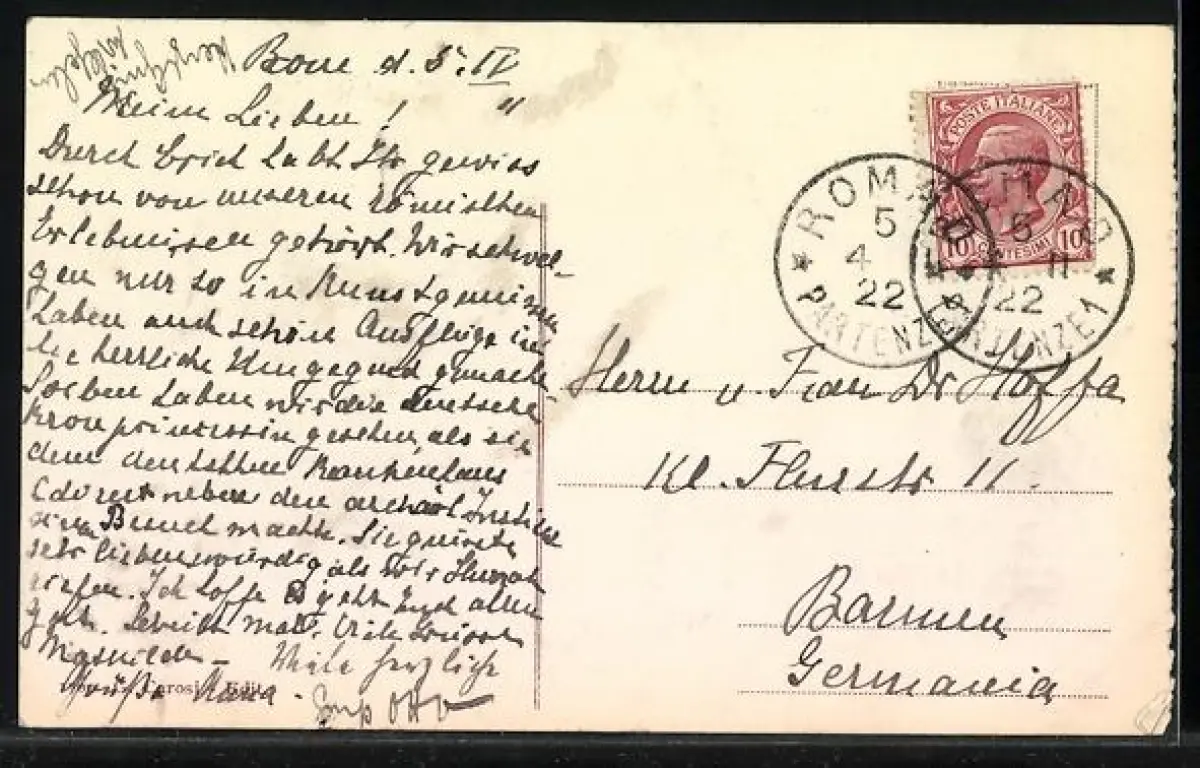 Rom d. 5. IV
Meine Lieben!
Durch Erich habt Ihr gewiss
schon von unseren römischen
Erlebnissen gehört. Wir schwel-
gen nur so in Kunstgenüssen
haben auch schöne Ausflüge in
die herrliche Umgegend gemacht
Soeben haben wir die deutsche
Kronprinzessin gesehen, als sie
dem deutschen Krankenhaus
neben dem archäol. Institut
einen Besuch machte. Sie grüsste
sehr liebenswürdig als wir Hurrah
riefen. Ich hoffe es geht Euch allen
gut. Schreibt mal. Viele Grüsse
Mathilde - Viele herzliche
Grüße
Otto
POSTE ITALIANE
10 CENTESIMI 10
ROMA
5
4
22
PARTENZE
5
22
1
Herrn u. Frau Dr Hoffa
Kl. Flurstr 11.
Barmen
Germania